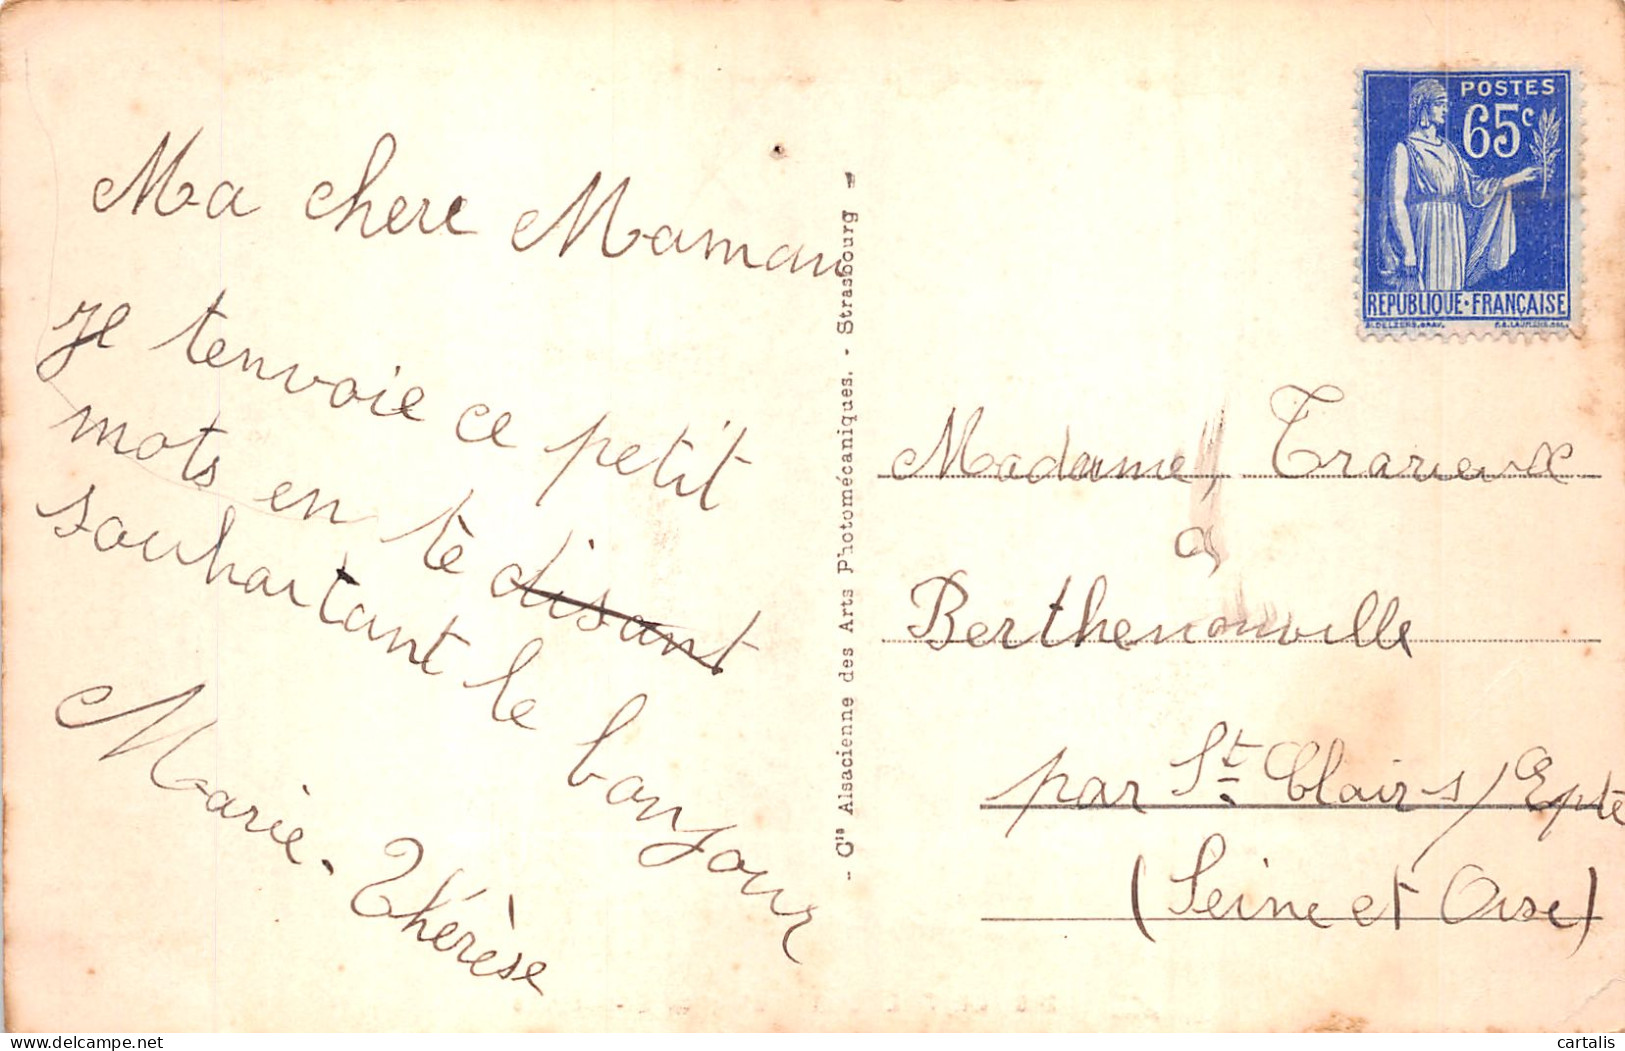 Ma chere Maman
je tenvoie ce petit
mots en te disant
souhaitant le bonjour
Marie-Thérèse
- Cie Alsacienne des Arts Photomécaniques. - Strasbourg -
POSTES
65c
REPUBLIQUE·FRANÇAISE
Madame, Trarieux
a
Berthenonville
par St Clair s/Epte
(Seine et Oise)
delcampe.net
cartalis